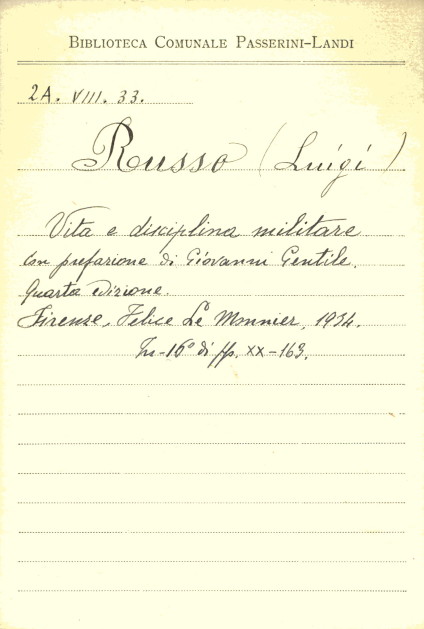 BIBLIOTECA COMUNALE PASSERINI-LANDI
2A. VIII. 33.
Russo (Luigi)
Vita e disciplina militare
Con prefazione di Giovanni Gentile.
Quarta edizione.
Firenze, Felice Le Monnier, 1934.
In-16° di pp. XX-163.